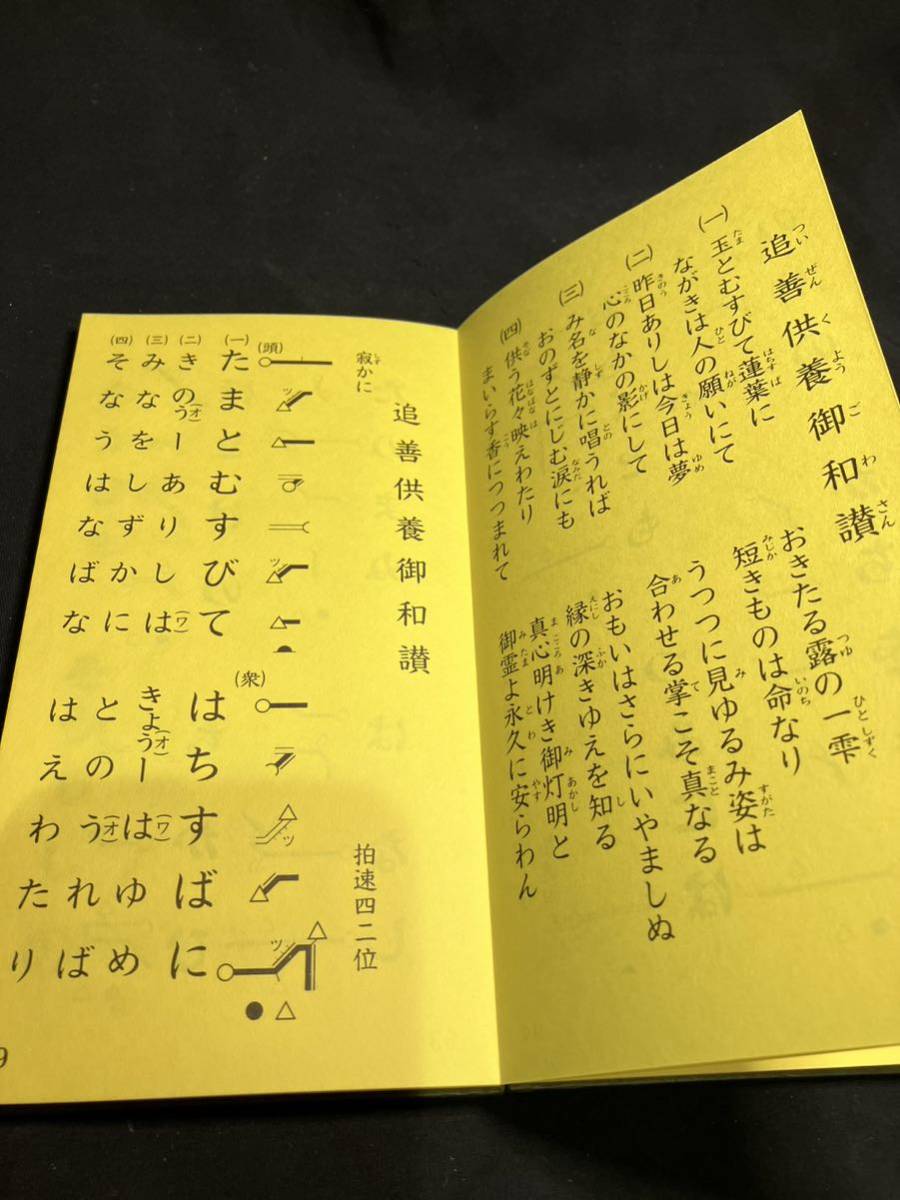 追善供養御和讃
つい ぜん く よう ご わ さん
(一) 玉とむすびて蓮葉に おきたる露の一雫
ながきは人の願いにて 短きものは命なり
(二) 昨日ありしは今日は夢 うつつに見ゆるみ姿は
心のなかの影にして 合わせる掌こそ真なる
(三) み名を静かに唱うれば おもいはさらにいやましぬ
おのずとにじむ涙にも 縁の深きゆえを知る
(四) 供う花々映えわたり 真心明けき御灯明と
まいらす香につつまれて 御霊よ永久に安らわん
追善供養御和讃
寂かに 拍速四二位
(頭) (衆)
(一) たまとむすびて はちすばに
(二) きのう(オ)ーありしは(ワ) きょう(オ)ーは(ワ)ゆめ
(三) みなをしずかに とのう(オ)れば
(四) そなうはなばな はえわたり
9